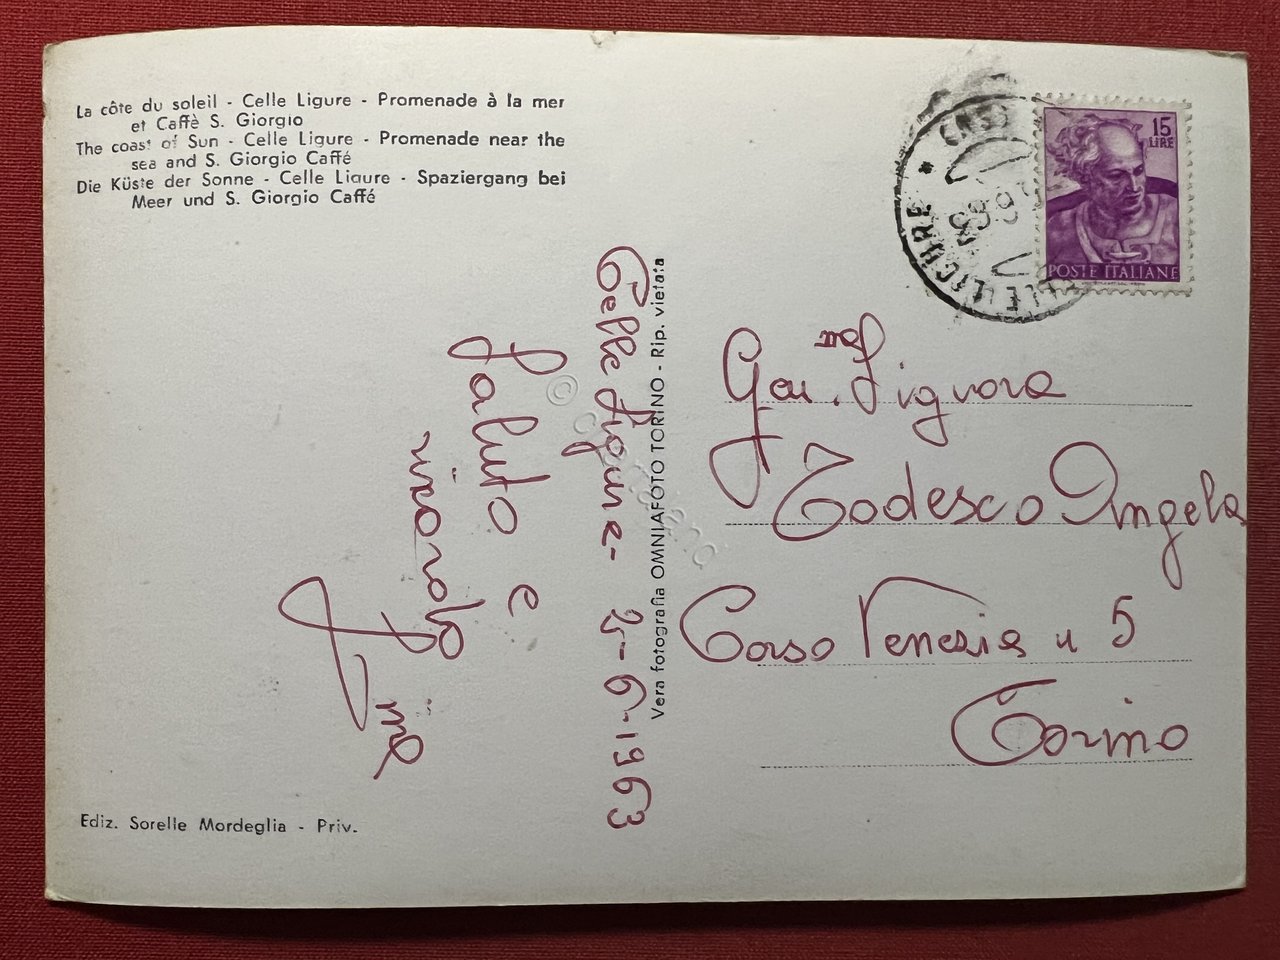 La côte du soleil - Celle Ligure - Promenade à la mer
et Caffè S. Giorgio
The coast of Sun - Celle Ligure - Promenade near the
sea and S. Giorgio Caffé
Die Küste der Sonne - Celle Ligure - Spaziergang bei
Meer und S. Giorgio Caffé
Celle Ligure - 25-6-1963
Saluto e
ricordo
Ediz. Sorelle Mordeglia - Priv.
Vera fotografia OMNIAFOTO TORINO - Rip. vietata
15
LIRE
POSTE ITALIANE
CELLE LIGURE *
Signora
Todesco Angela
Corso Venezia n 5
Torino